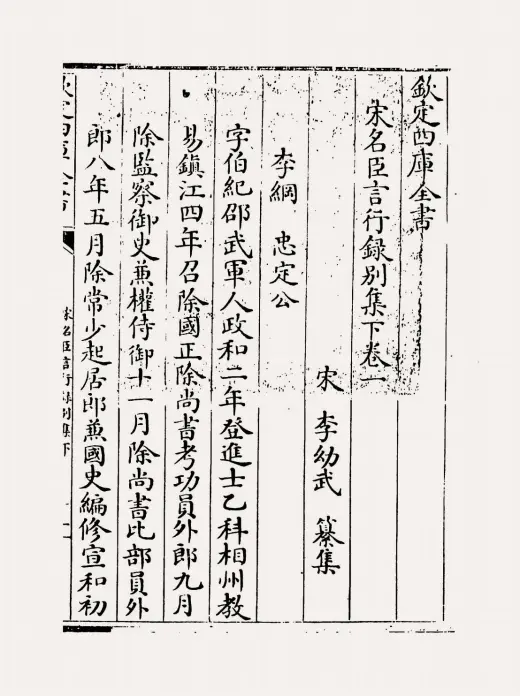 欽定四庫全書
宋名臣言行録别集下卷一
宋 李幼武 纂集
李綱 忠定公
字伯紀邵武軍人政和二年登進士乙科相州教
易鎮江四年召除國正除尚書考功員外郎九月
除監察御史兼權侍御十一月除尚書比部員外
郎八年五月除常少起居郎兼國史編修宣和初
欽定四庫全書
宋名臣言行録别集下
一